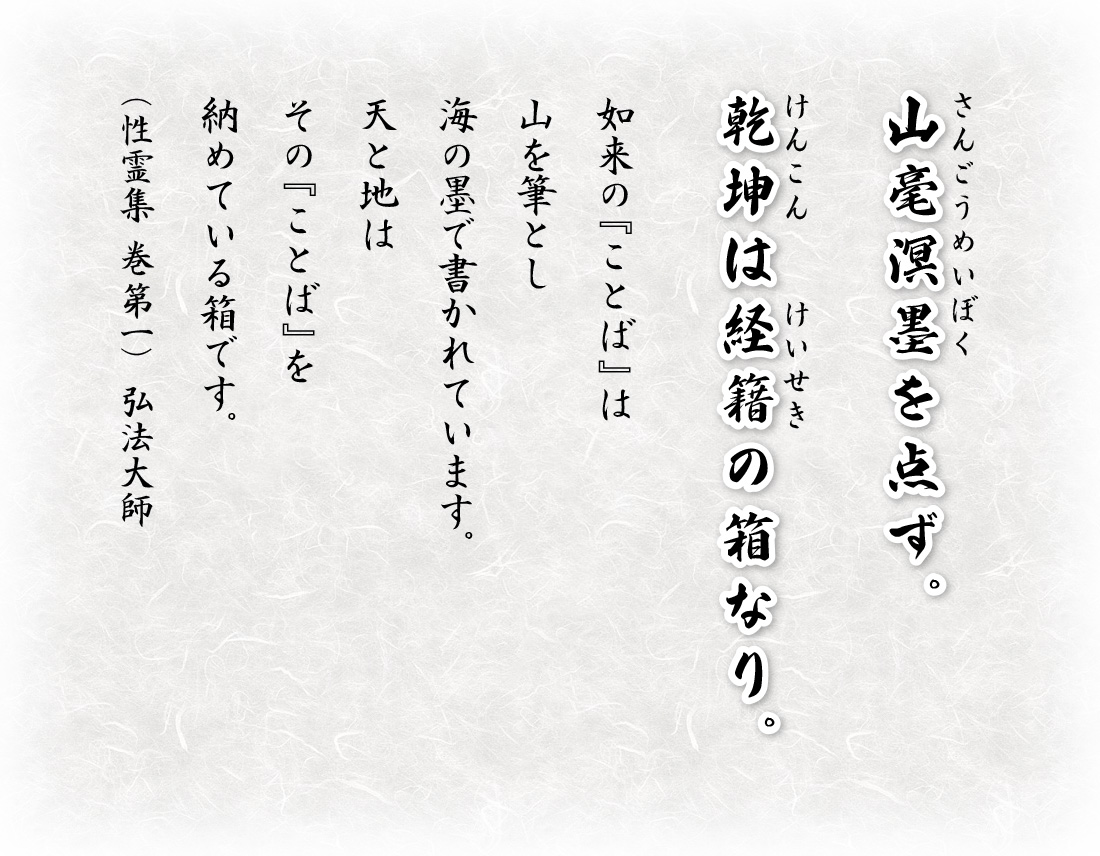 山毫溟墨を点ず。
さんごうめいぼく
乾坤は経籍の箱なり。
けんこん けいせき
如来の『ことば』は
山を筆とし
海の墨で書かれています。
天と地は
その『ことば』を
納めている箱です。
（性霊集 巻第一） 弘法大師